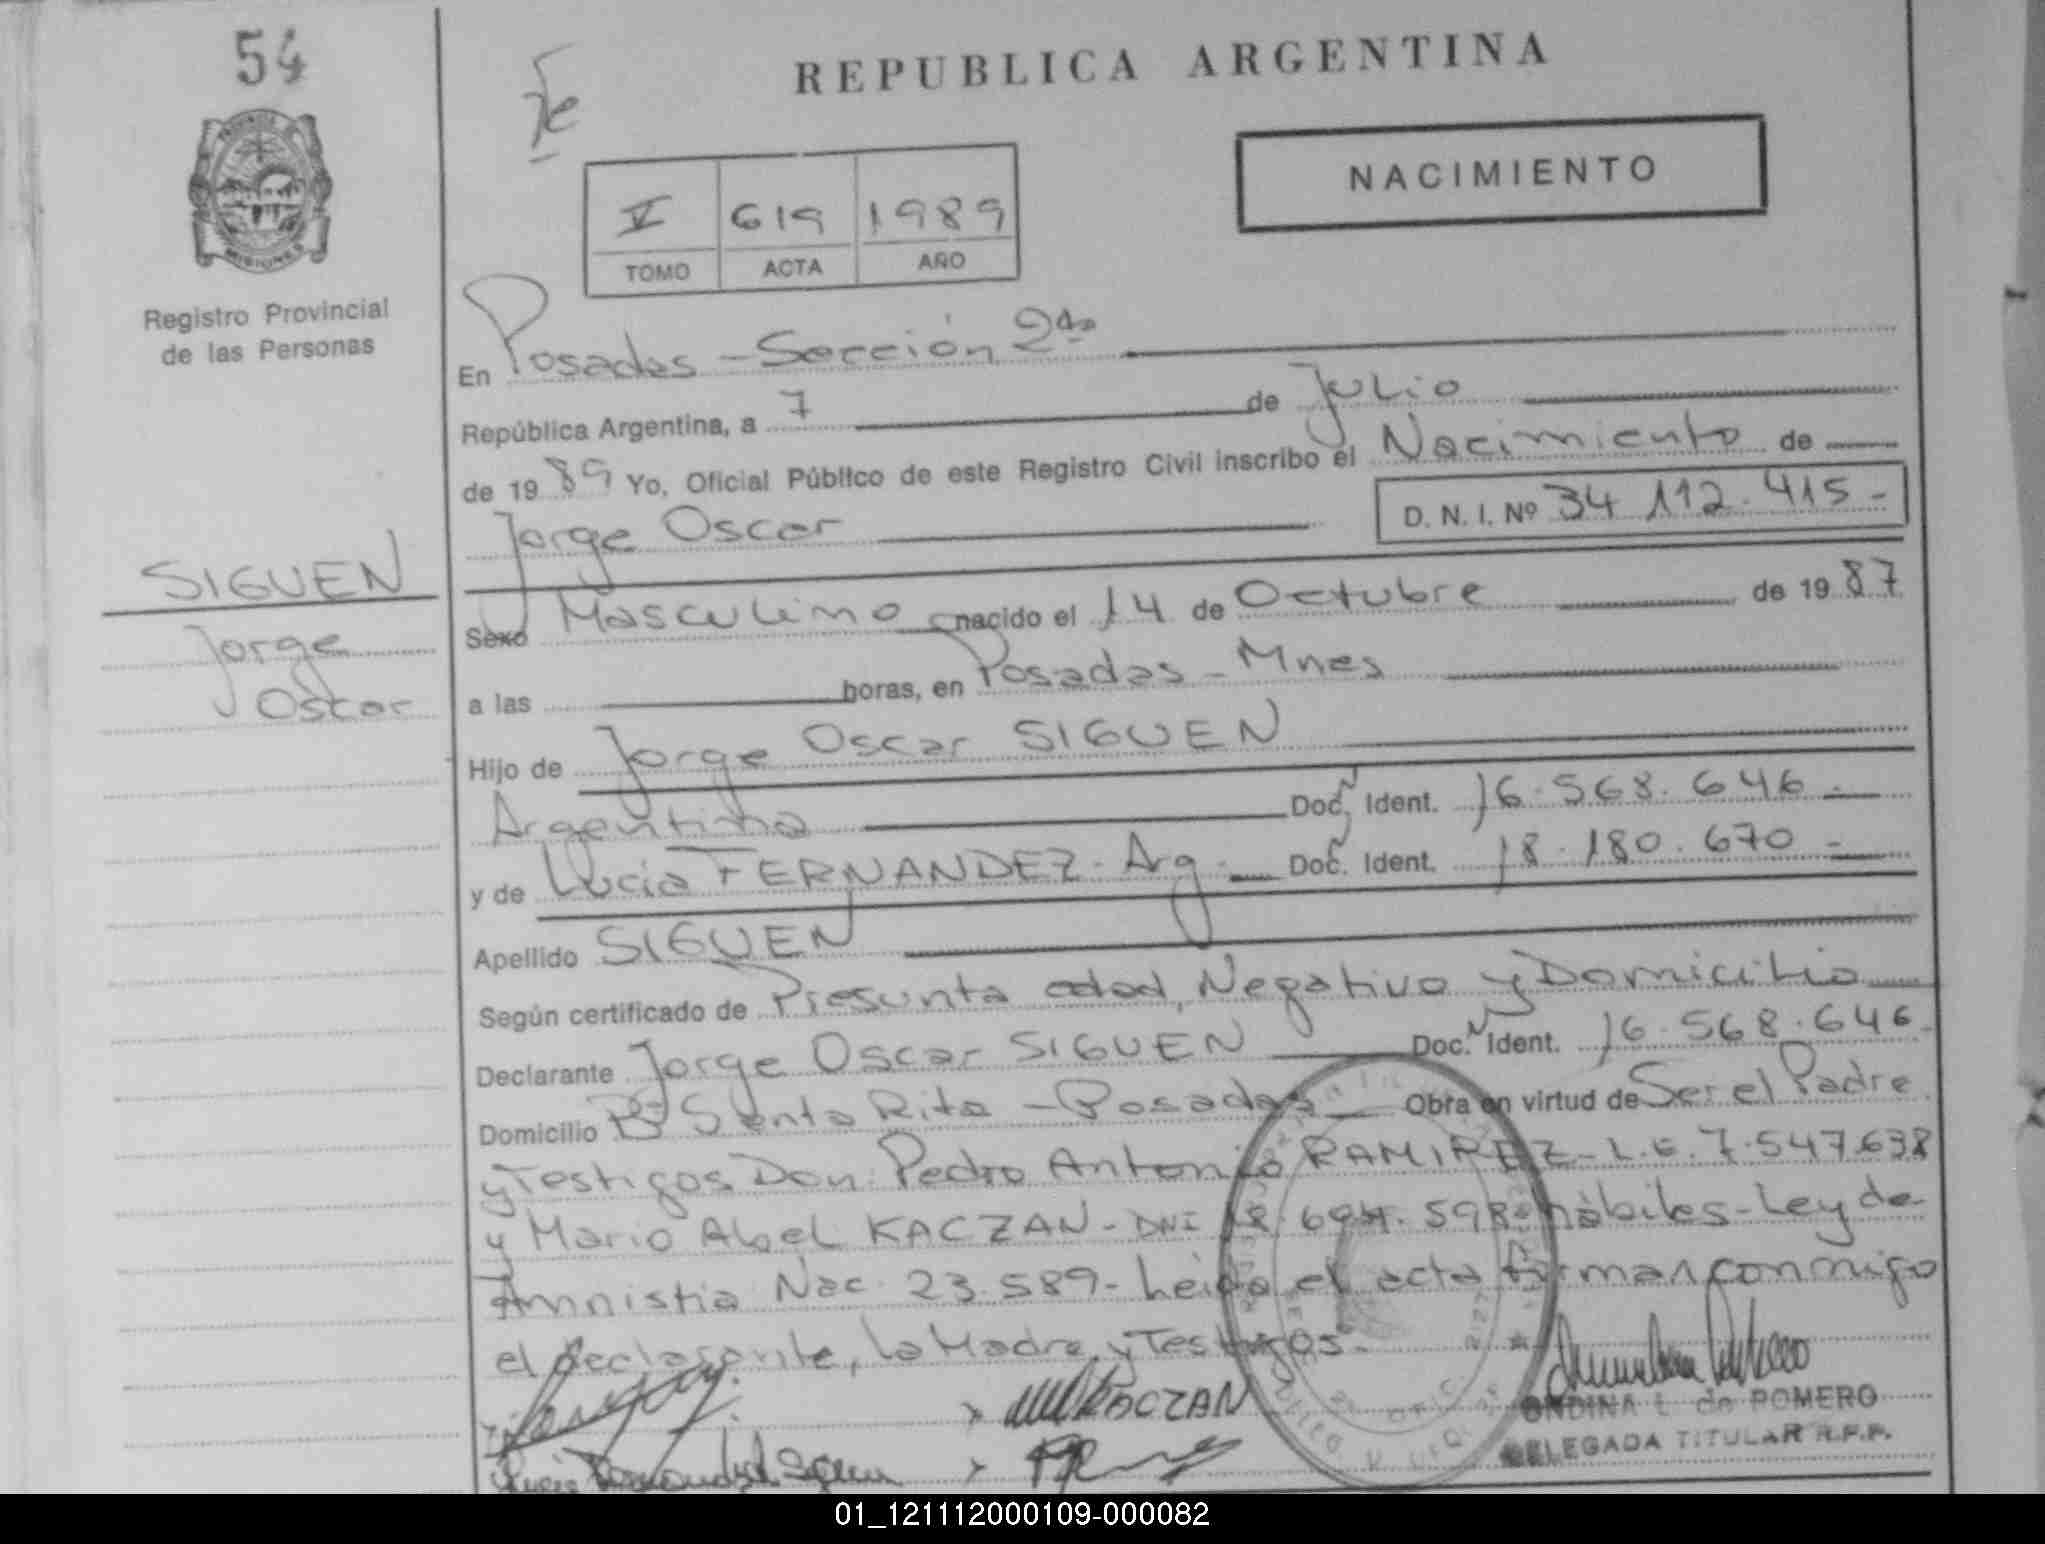 54
REPUBLICA ARGENTINA
NACIMIENTO
V 619 1989
TOMO ACTA AÑO
PROVINCIA DE
MISIONES
Registro Provincial
de las Personas
En Posadas - Sección 2da
República Argentina, a 7 de Julio
de 1989 Yo, Oficial Público de este Registro Civil inscribo el Nacimiento de
Jorge Oscar D. N. I. Nº 34 112.415-
SIGUEN
Jorge
Oscar
Sexo Masculino nacido el 14 de Octubre de 1987
a las horas, en Posadas - Mnes
Hijo de Jorge Oscar SIGUEN
Argentina Doc. Ident. 16.568.646.-
y de Lucia FERNANDEZ - Arg. Doc. Ident. 18.180.670-
Apellido SIGUEN
Según certificado de Presunta edad, Negativo y Domicilio
Declarante Jorge Oscar SIGUEN Doc. Ident. 16.568.646-
Domicilio Bº Santa Rita - Posadas Obra en virtud de Ser el Padre
y Testigos Don: Pedro Antonio RAMIREZ - L.E. 7.547.638
y Mario Abel KACZAN - DNI 598 hàbiles - Ley de
Amnistia Nac. 23.589- Leida el acta firman conmigo
el declarante, la Madre y Testigos.
KACZAN
ONDINA L. de POMERO
DELEGADA TITULAR R.P.P.
01_121112000109-000082